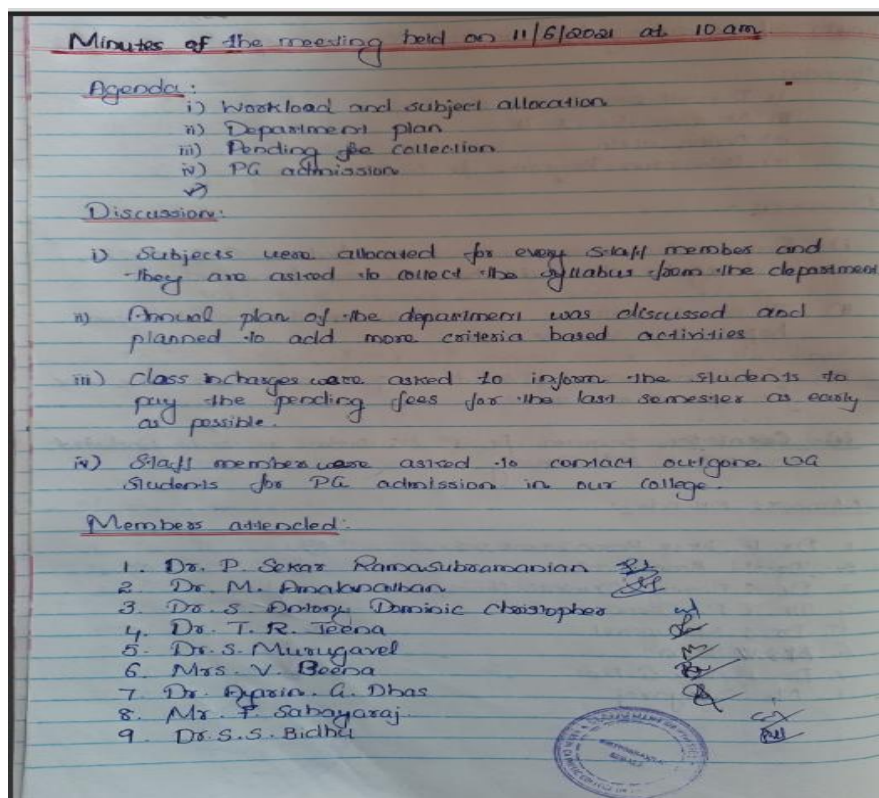 Minutes of the meeting held on 11/6/2021 at 10 am
Agenda:
i) Workload and subject allocation
ii) Department plan
iii) Pending fee collection
iv) PG admission
v)
Discussion:
i) Subjects were allocated for every staff member and
they are asked to collect the syllabus from the department
ii) Annual plan of the department was discussed and
planned to add more criteria based activities
iii) Class incharges were asked to inform the students to
pay the pending fees for the last semester as early
as possible.
iv) Staff members were asked to contact outgone UG
students for PG admission in our college.
Members attended:
1. Dr. P. Sekar Ramasubramanian
2. Dr. M. Amalanathan
3. Dr. S. Antony Dominic Christopher
4. Dr. T. R. Jeena
5. Dr. S. Murugavel
6. Mrs. V. Beena
7. Dr. G. Dhas
8. Mr. F. Sahayaraj
9. Dr. S. S. Bidhu